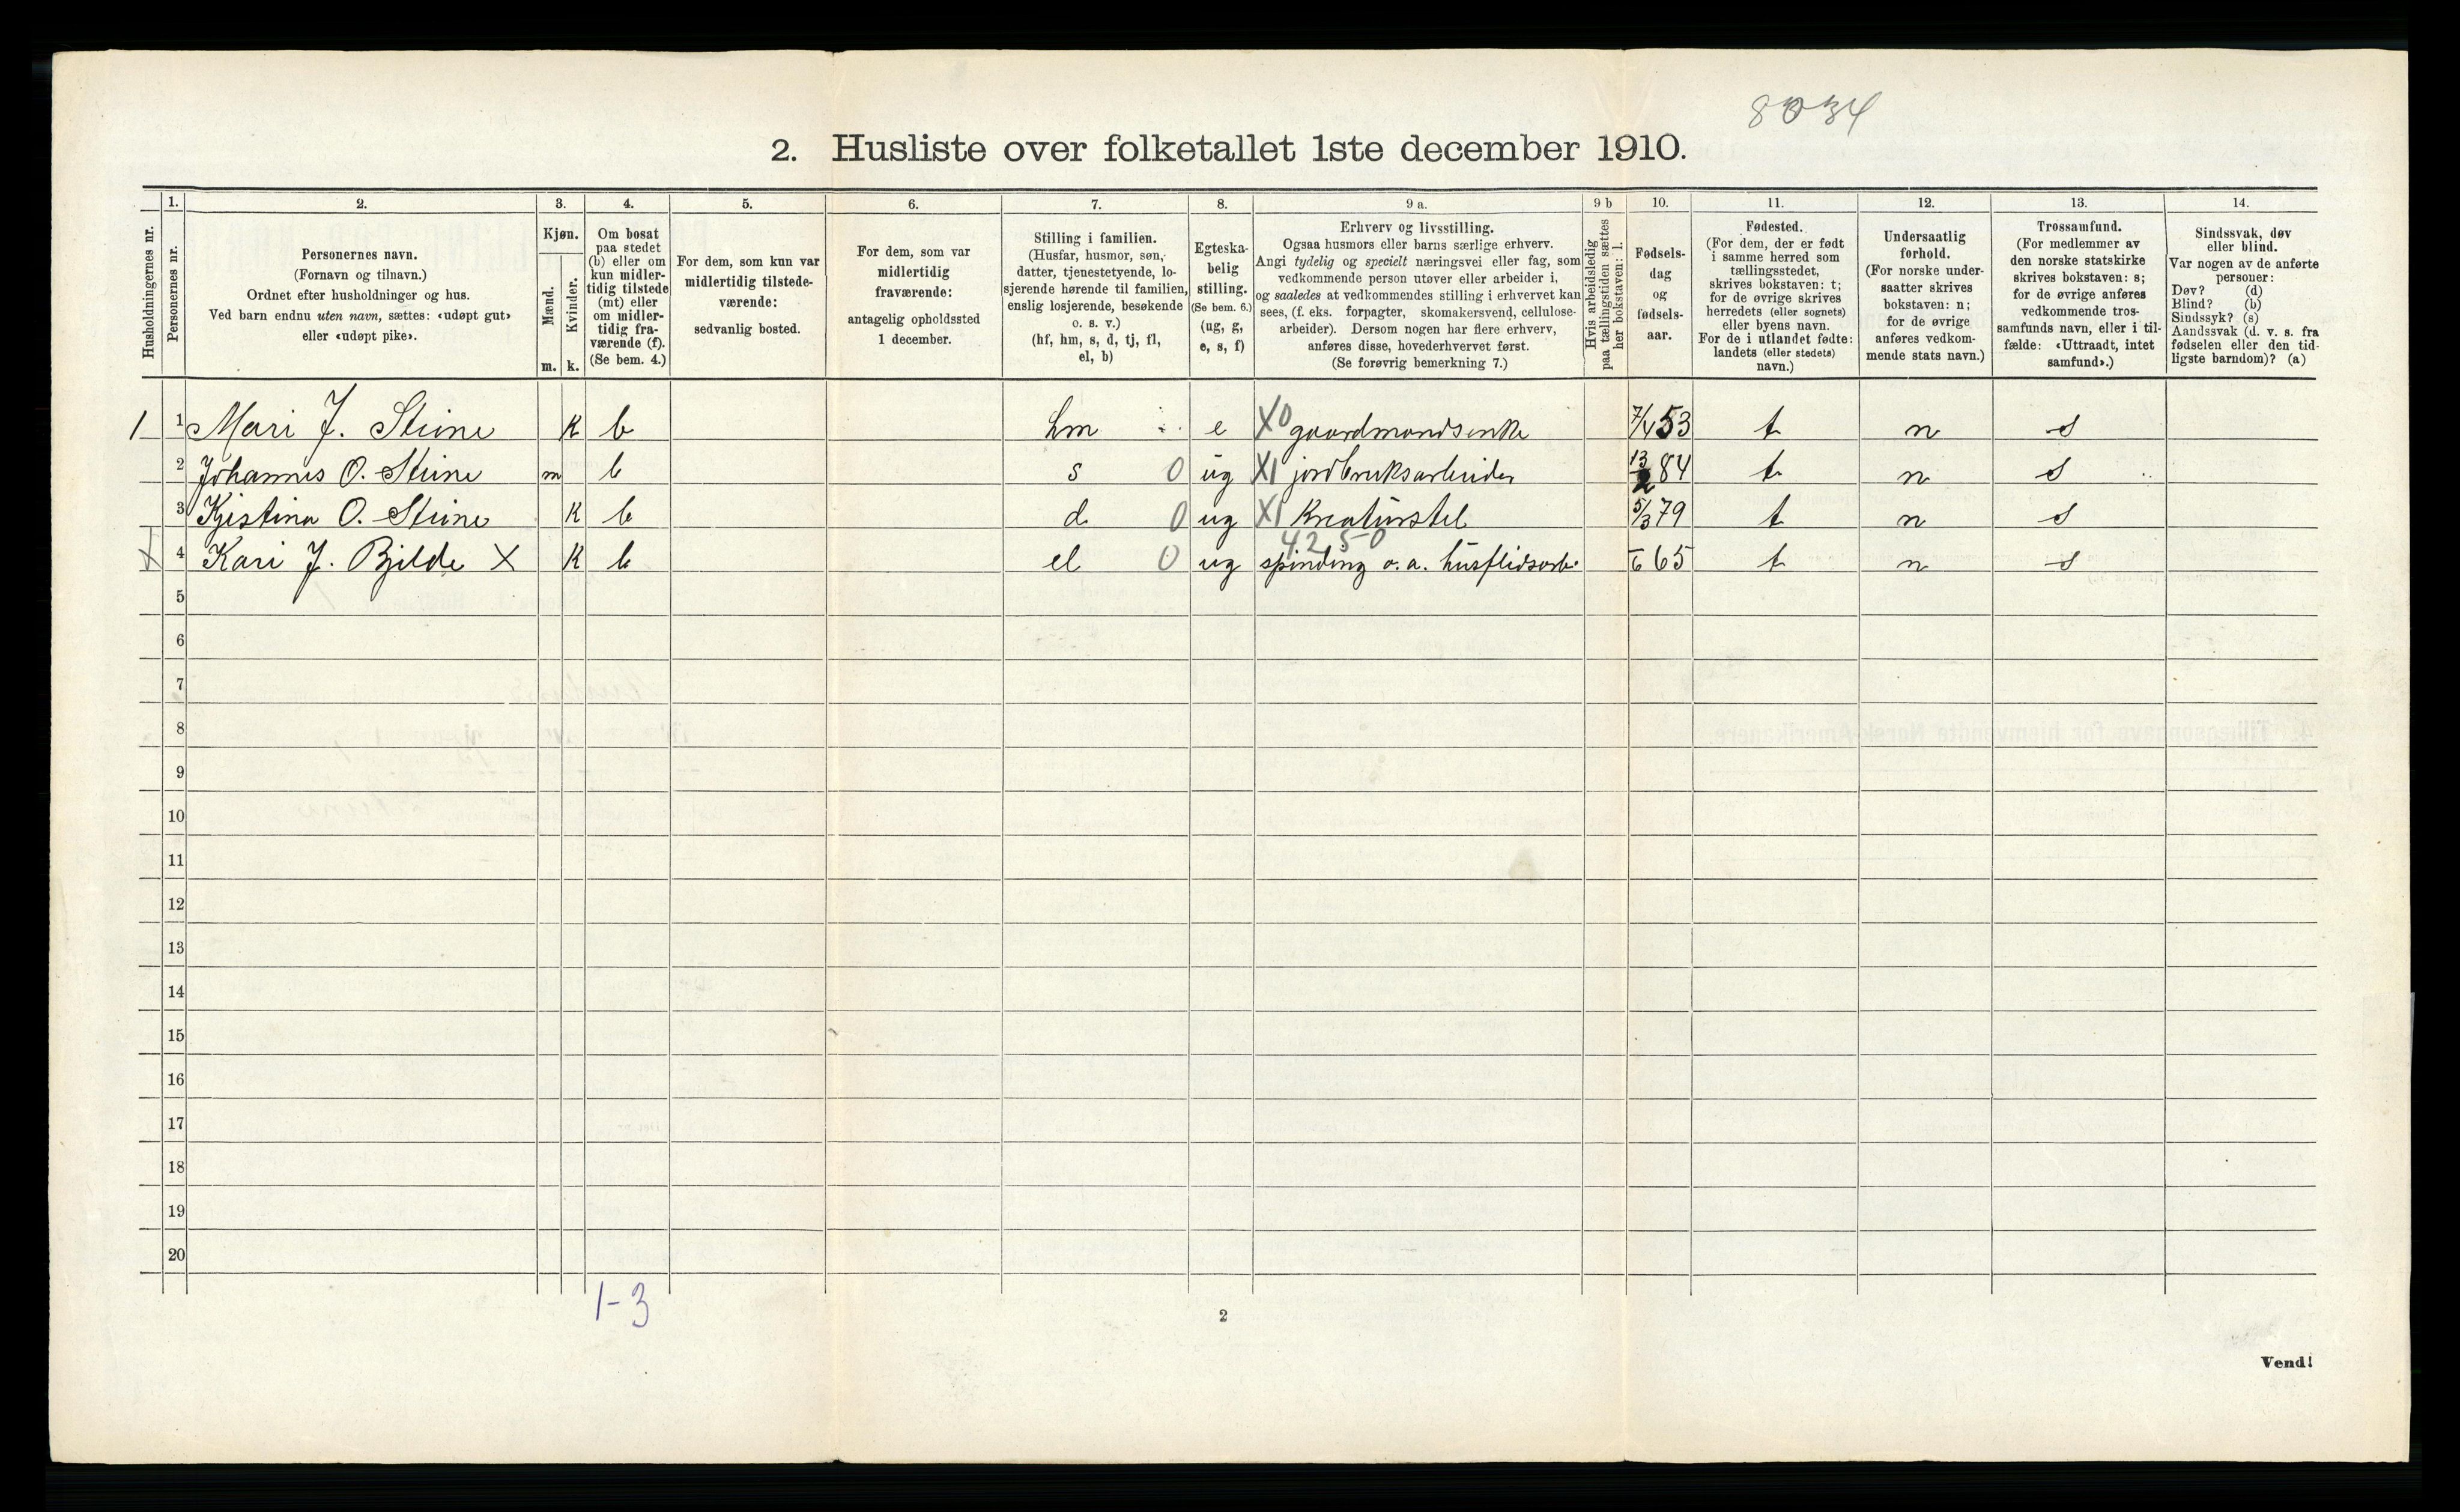 8034
2. Husliste over folketallet 1ste december 1910.
Husholdningernes nr.
1.
Personernes nr.
2.
Personernes navn.
(Fornavn og tilnavn.)
Ordnet efter husholdninger og hus.
Ved barn endnu uten navn, sættes: «udøpt gut»
eller «udøpt pike».
3.
Kjøn.
Mænd.
Kvinder.
m. k.
4.
Om bosat
paa stedet
(b) eller om
kun midler-
tidig tilstede
(mt) eller
om midler-
tidig fra-
værende (f).
(Se bem. 4.)
5.
For dem, som kun var
midlertidig tilstede-
værende:
sedvanlig bosted.
6.
For dem, som var
midlertidig
fraværende:
antagelig opholdssted
1 december.
7.
Stilling i familien.
(Husfar, husmor, søn,
datter, tjenestetyende, lo-
sjerende hørende til familien,
enslig losjerende, besøkende
o. s. v.)
(hf, hm, s, d, tj, fl,
el, b)
8.
Egteska-
belig
stilling.
(Se bem. 6.)
(ug, g,
e, s, f)
9 a.
Erhverv og livsstilling.
Ogsaa husmors eller barns særlige erhverv.
Angi tydelig og specielt næringsvei eller fag, som
vedkommende person utøver eller arbeider i,
og saaledes at vedkommendes stilling i erhvervet kan
sees, (f. eks. forpagter, skomakersvend, cellulose-
arbeider). Dersom nogen har flere erhverv,
anføres disse, hovederhvervet først.
(Se forøvrig bemerkning 7.)
9 b
Hvis arbeidsledig
paa tællingstiden sættes
her bokstaven: l.
10.
Fødsels-
dag
og
fødsels-
aar.
11.
Fødested.
(For dem, der er født
i samme herred som
tællingsstedet,
skrives bokstaven: t;
for de øvrige skrives
herredets (eller sognets)
eller byens navn.
For de i utlandet fødte:
landets (eller stedets)
navn.)
12.
Undersaatlig
forhold.
(For norske under-
saatter skrives
bokstaven: n;
for de øvrige
anføres vedkom-
mende stats navn.)
13.
Trossamfund.
(For medlemmer av
den norske statskirke
skrives bokstaven: s;
for de øvrige anføres
vedkommende tros-
samfunds navn, eller i til-
fælde: «Uttraadt, intet
samfund».)
14.
Sindssvak, døv
eller blind.
Var nogen av de anførte
personer:
Døv? (d)
Blind? (b)
Sindssyk? (s)
Aandssvak (d. v. s. fra
fødselen eller den tid-
ligste barndom)? (a)
1 1 Mari J. Steine K b hm e X0 gaardmandsenke 7/4 53 t n s
2 Johannes O. Steine m b s 0 ug X1 jordbruksarbeider 13/2 84 t n s
3 Kristina O. Steine K b d 0 ug X1 Kreaturstel 5/3 79 t n s
4250
4 Kari J. Bjelde X K b el 0 ug spinding o.a. husflidsarb. 65 t n s
5
6
7
8
9
10
11
12
13
14
15
16
17
18
19
20
1-3
2
Vend!